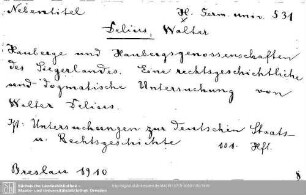 Nebentitel H. Germ. univ. 531
Delius, Walter
Hauberge und Haubergsgenossenschaften
des Siegerlandes. Eine rechtsgeschichtliche
und dogmatische Untersuchung von
Walter Delius.
Untersuchungen zur deutschen Staats-
u. Rechtsgeschichte 101. Hft.
Breslau 1910